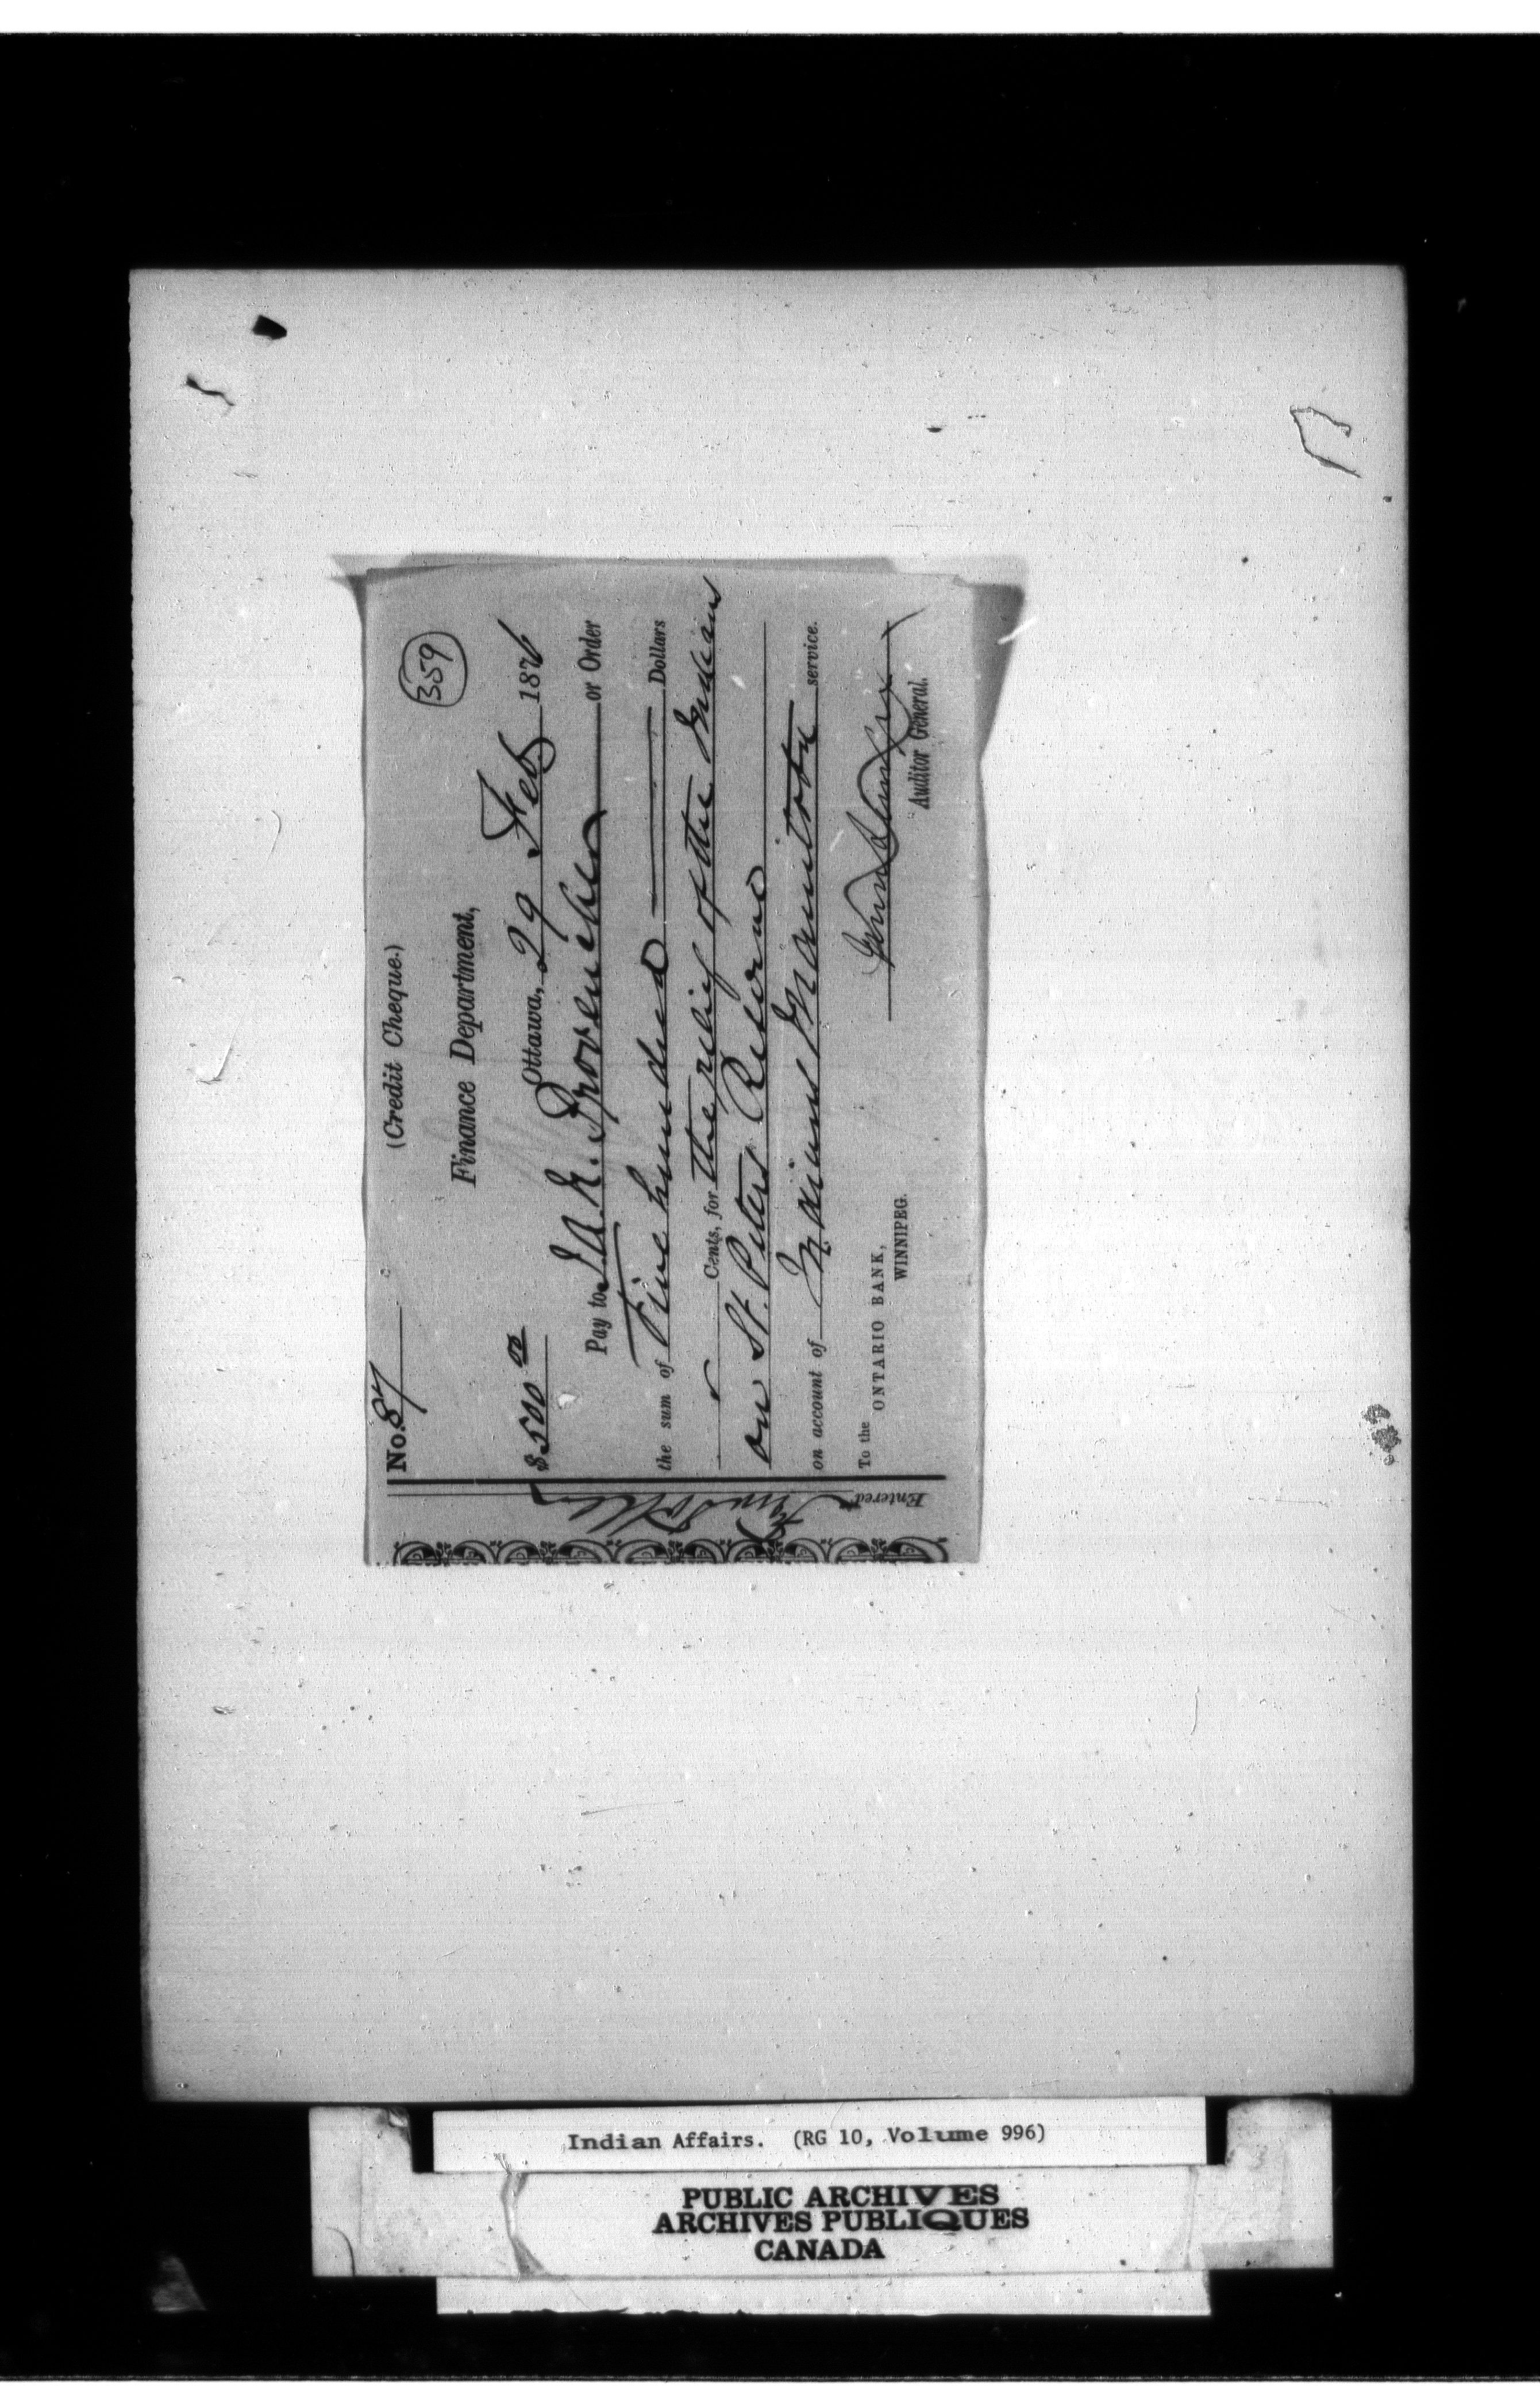 No. 87 (Credit Cheque.) 359
Finance Department,
$500 00 Ottawa, 29 Feb 1876
Pay to J.A.N. Provencher or Order
the sum of Five hundred Dollars
Cents, for the relief of the Indians
on St. Peters Reserve
on account of Indians Manitoba service.
To the
ONTARIO BANK,
WINNIPEG.
Auditor General.
Entered
Indian Affairs. (RG 10, Volume 996)
PUBLIC ARCHIVES
ARCHIVES PUBLIQUES
CANADA